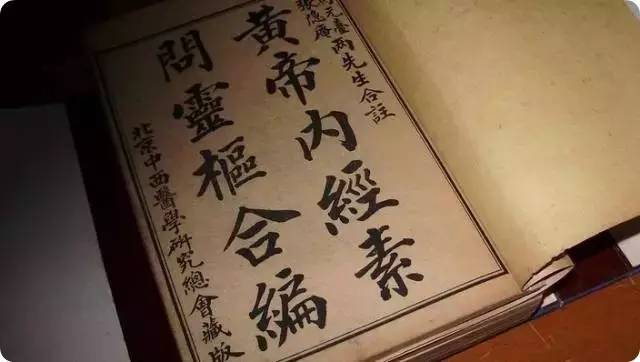 元臺張隐庵两先生合註
黄帝内經素
問靈樞合編
北京中西醫學研究總會藏版